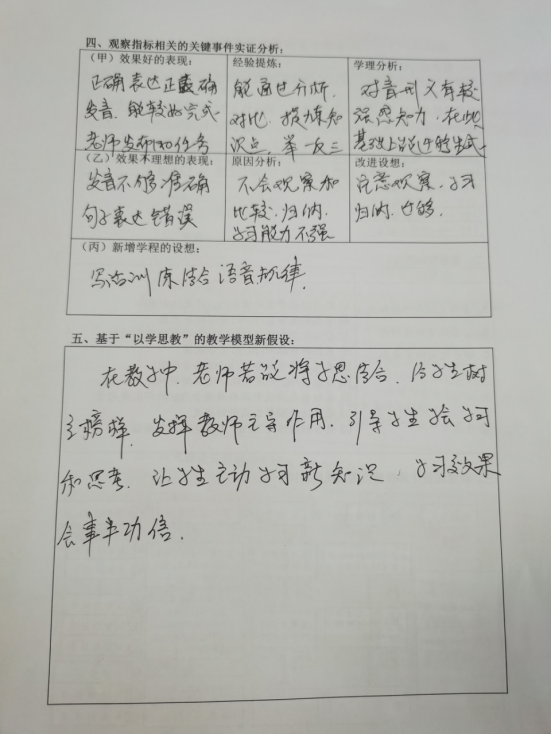 四、观察指标相关的关键事件实证分析：
（甲）效果好的表现：
正确表达正确
发音，能较好完成
老师发布的任务
经验提炼：
能通过分析，
对比，提炼知
识点，举一反三
学理分析：
对音形义有较
强感知力，在此
（乙）效果不理想的表现：
发音不够准确
句子表达错误
原因分析：
不会观察和
比较，归纳，
学习能力不强
改进设想：
注意观察，学习
归纳，
（丙）新增学程的设想：
写话训练结合语音规律，
五、基于“以学思教”的教学模型新假设：
在教学中，老师若能将学思结合，给学生树
立榜样，发挥教师主导作用，引导学生会学习
和思考，让学生主动学习新知识，学习效果
会事半功倍．